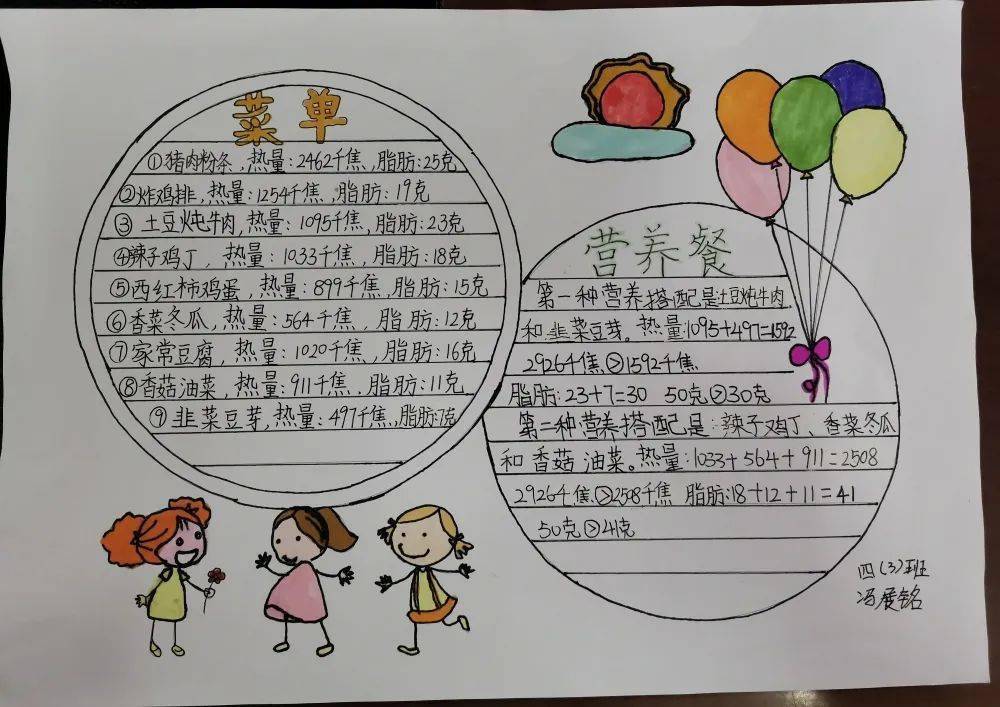 菜单
①猪肉粉条,热量:2462千焦,脂肪:25克
②炸鸡排,热量:1254千焦,脂肪:19克
③ 土豆炖牛肉,热量:1095千焦,脂肪:23克
④辣子鸡丁,热量:1033千焦,脂肪:18克
⑤西红柿鸡蛋,热量:899千焦,脂肪:15克
⑥香菜冬瓜,热量:564千焦,脂肪:12克
⑦家常豆腐,热量:1020千焦,脂肪:16克
⑧香菇油菜,热量:911千焦,脂肪:11克
⑨韭菜豆芽,热量:497千焦,脂肪:7克
营养餐
第一种营养搭配是土豆炖牛肉
和韭菜豆芽。热量:1095+497=1592
2926千焦>1592千焦
脂肪:23+7=30 50克>30克
第二种营养搭配是:辣子鸡丁、香菜冬瓜
和香菇油菜。热量:1033+564+911=2508
2926千焦>2508千焦 脂肪:18+12+11=41
50克>41克
四(3)班
冯展铭